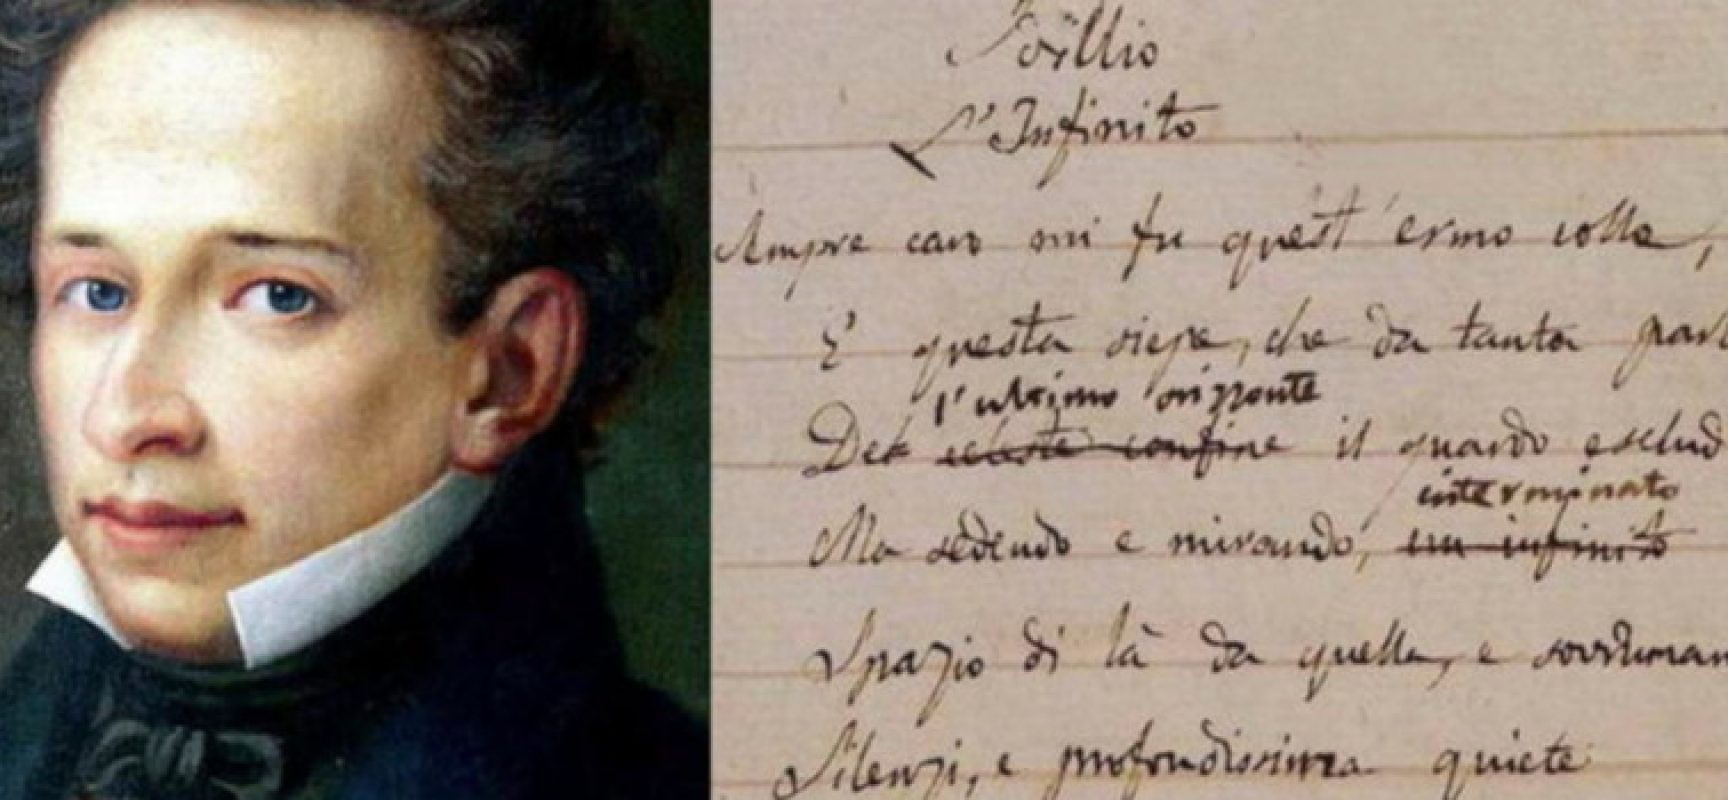 Idillio
L'Infinito
Sempre caro mi fu quest'ermo colle,
E questa siepe, che da tanta part
l'ultimo orizzonte
Del celeste confine il guardo esclud
interminato
Ma sedendo e mirando, un infinito
Spazio di là da quella, e sovruman
Silenzi, e profondissima quiete